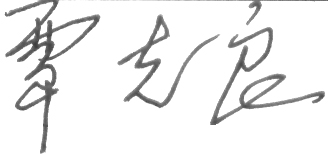 覃志良